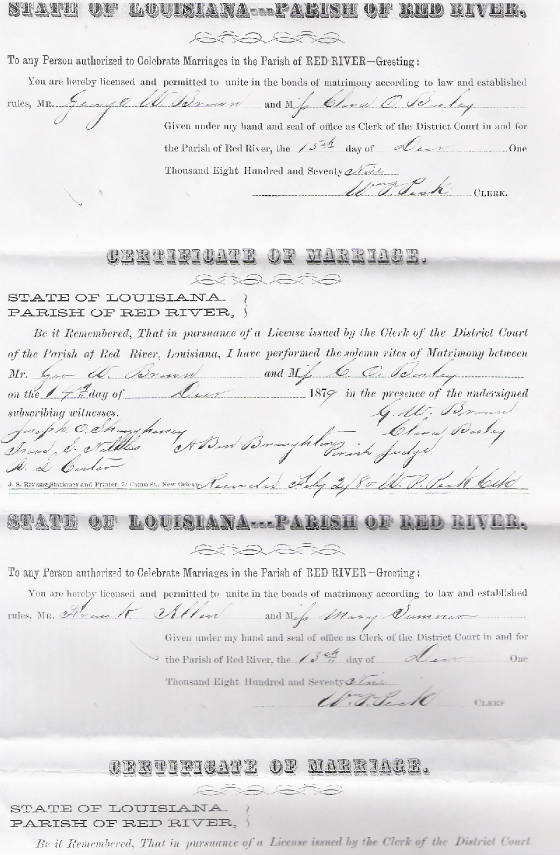 STATE OF LOUISIANA---PARISH OF RED RIVER.
To any Person authorized to Celebrate Marriages in the Parish of RED RIVER—Greeting:
You are hereby licensed and permitted to unite in the bonds of matrimony according to law and established
rules, MR. George W Brown and Miss Clara C
Given under my hand and seal of office as Clerk of the District Court in and for
the Parish of Red River, the 15th day of Decr One
Thousand Eight Hundred and Seventy Nine
CLERK.
CERTIFICATE OF MARRIAGE.
STATE OF LOUISIANA.
PARISH OF RED RIVER,
Be it Remembered, That in pursuance of a License issued by the Clerk of the District Court
of the Parish of Red River, Louisiana, I have performed the solemn rites of Matrimony between
Mr. Geo W. Brown and Miss C. C.
on the day of Decr 1879 in the presence of the undersigned
subscribing witnesses. G. W. Brown
Joseph Clara
H Ben Broughton Parish Judge
J. S. Rivers, Stationer and Printer, Camp St., New Orleans Recorded Feby 2/80 W. P. Clk
STATE OF LOUISIANA---PARISH OF RED RIVER.
To any Person authorized to Celebrate Marriages in the Parish of RED RIVER—Greeting:
You are hereby licensed and permitted to unite in the bonds of matrimony according to law and established
rules, MR. Frank Allen and Miss Mary Sumner
Given under my hand and seal of office as Clerk of the District Court in and for
the Parish of Red River, the 13th day of Decr One
Thousand Eight Hundred and Seventy Nine
CLERK
CERTIFICATE OF MARRIAGE.
STATE OF LOUISIANA.
PARISH OF RED RIVER,
Be it Remembered, That in pursuance of a License issued by the Clerk of the District Court